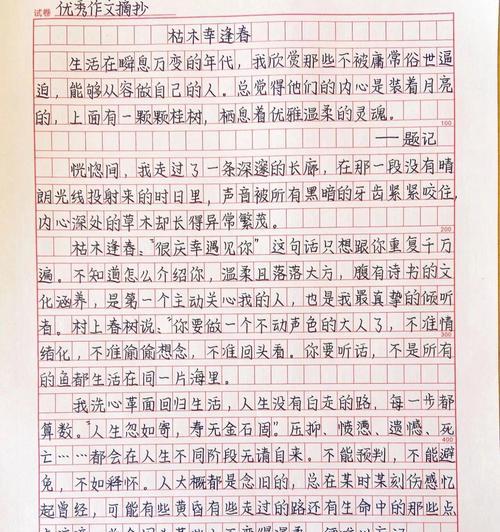 试卷 优秀作文摘抄
枯木幸逢春
生活在瞬息万变的年代，我欣赏那些不被庸常俗世逼
迫，能够从容做自己的人。总觉得他们的内心是装着月亮
的，上面有一颗颗桂树，栖息着优雅温柔的灵魂。
100
——题记
恍惚间，我走过了一条深邃的长廊，在那一段没有晴
朗光线投射来的时日里，声音被所有黑暗的牙齿紧紧咬住，
内心深处的草木却长得异常繁茂。
200
枯木逢春、“很庆幸遇见你”这句话只想跟你重复千万
遍。不知道怎么介绍你，温柔且落落大方，腹有诗书的文
化涵养，是第一个主动关心我的人，也是我最真挚的倾听
者。村上春树说、“你要做一个不动声色的大人了，不准情
300
绪化，不准偷偷想念，不准回头看。你要听话，不是所有
的鱼都生活在同一片海里。
我洗心革面回归生活，人生没有白走的路，每一步都
算数。“人生忽如寄，寿无金石固”。压抑、愤懑、遗憾、死
400
亡……都会在人生不同阶段无请自来。不能预判，不能避
免，不如释怀。人大概都是念旧的，总在某时某刻伤感忆
起曾经，可能有些黄昏有些走过的路还有生命中的那些点